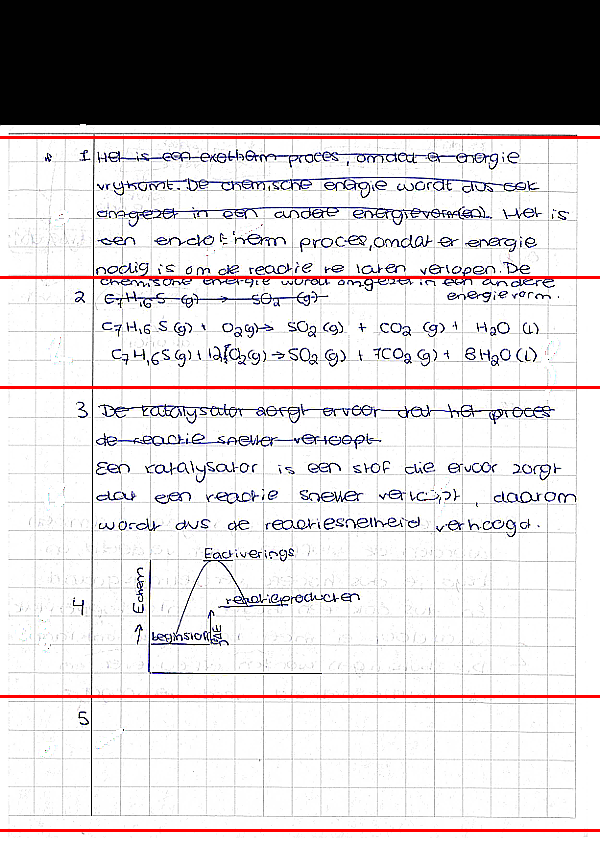 1 Het is een exotherm proces, omdat er energie
vrijkomt. De chemische energie wordt dus ook
omgezet in een andere energievorm(en). Het is
een endotherm proces, omdat er energie
nodig is om de reactie te laten verlopen. De
chemische energie wordt omgezet in een andere
energievorm.
2 C7H16S (g) → SO2 (g)
C7H16S (g) + O2(g) → SO2 (g) + CO2 (g) + H2O (l)
C7H16S(g) + 12 O2(g) → SO2(g) + 7CO2(g) + 8H2O(l)
3 De katalysator zorgt ervoor dat het proces
de reactie sneller verloopt
Een katalysator is een stof die ervoor zorgt
dat een reactie sneller verloopt, daarom
wordt dus de reactiesnelheid verhoogd.
4
Eactiverings
→ Echem
reactieproducten
beginstof
ΔE
5